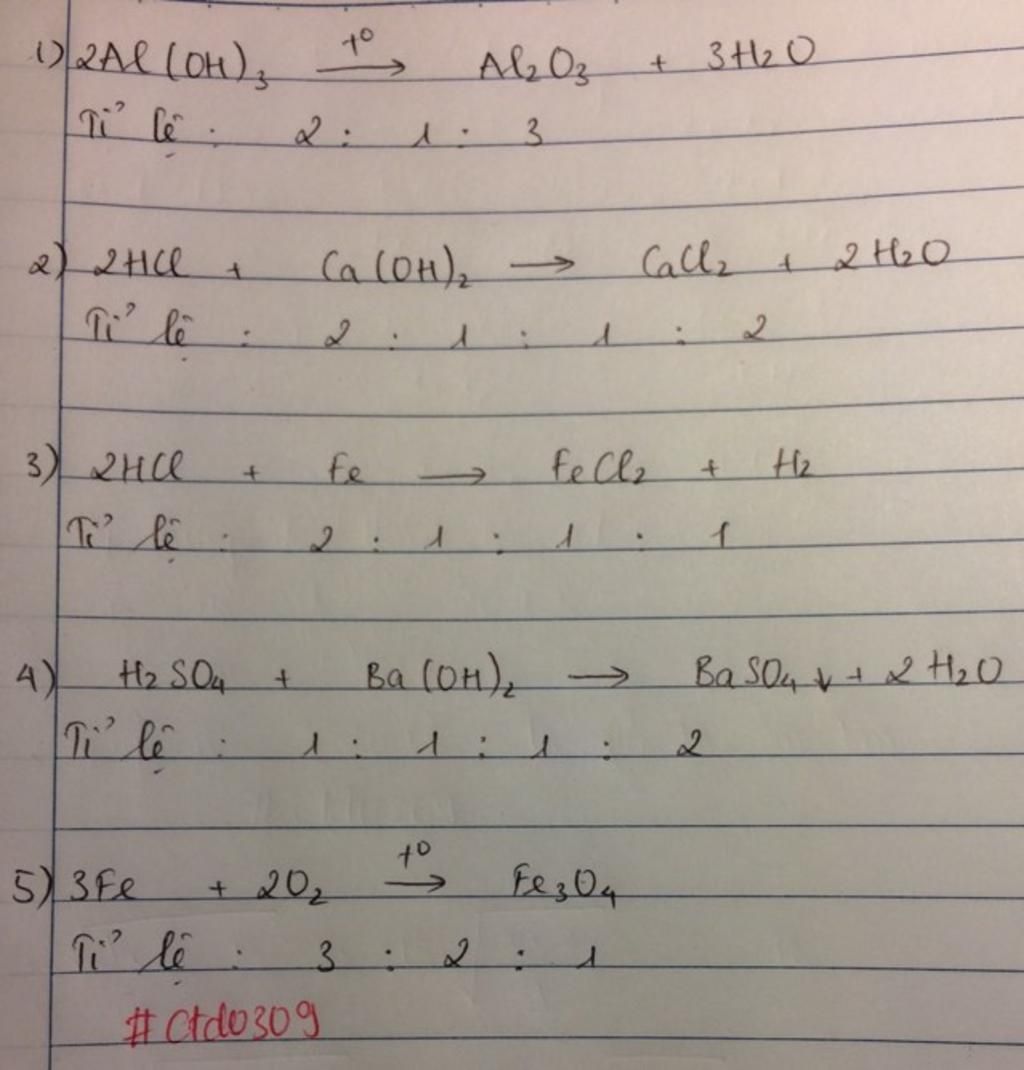 1) 2Al(OH)₃ →(t⁰) Al₂O₃ + 3H₂O
Tỉ lệ : 2 : 1 : 3
2) 2HCl + Ca(OH)₂ → CaCl₂ + 2H₂O
Tỉ lệ : 2 : 1 : 1 : 2
3) 2HCl + Fe → FeCl₂ + H₂
Tỉ lệ : 2 : 1 : 1 : 1
4) H₂SO₄ + Ba(OH)₂ → BaSO₄↓ + 2H₂O
Tỉ lệ : 1 : 1 : 1 : 2
5) 3Fe + 2O₂ →(t⁰) Fe₃O₄
Tỉ lệ : 3 : 2 : 1
#ctd0309